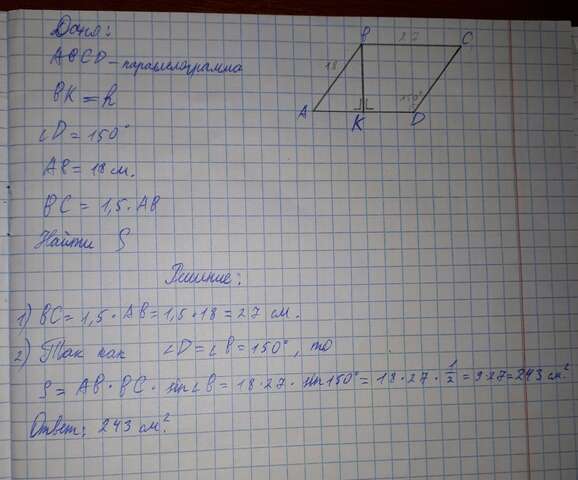 Дано:
ABCD - параллелограмм
BK = h
∠D = 150°
AB = 18 см.
BC = 1,5 · AB
Найти S
B 27 C
18
150°
A K D
Решение:
1) BC = 1,5 · AB = 1,5 · 18 = 27 см.
2) Так как ∠D = ∠B = 150°, то
S = AB · BC · sin∠B = 18 · 27 · sin150° = 18 · 27 · 1/2 = 9·27 = 243 см².
Ответ: 243 см².